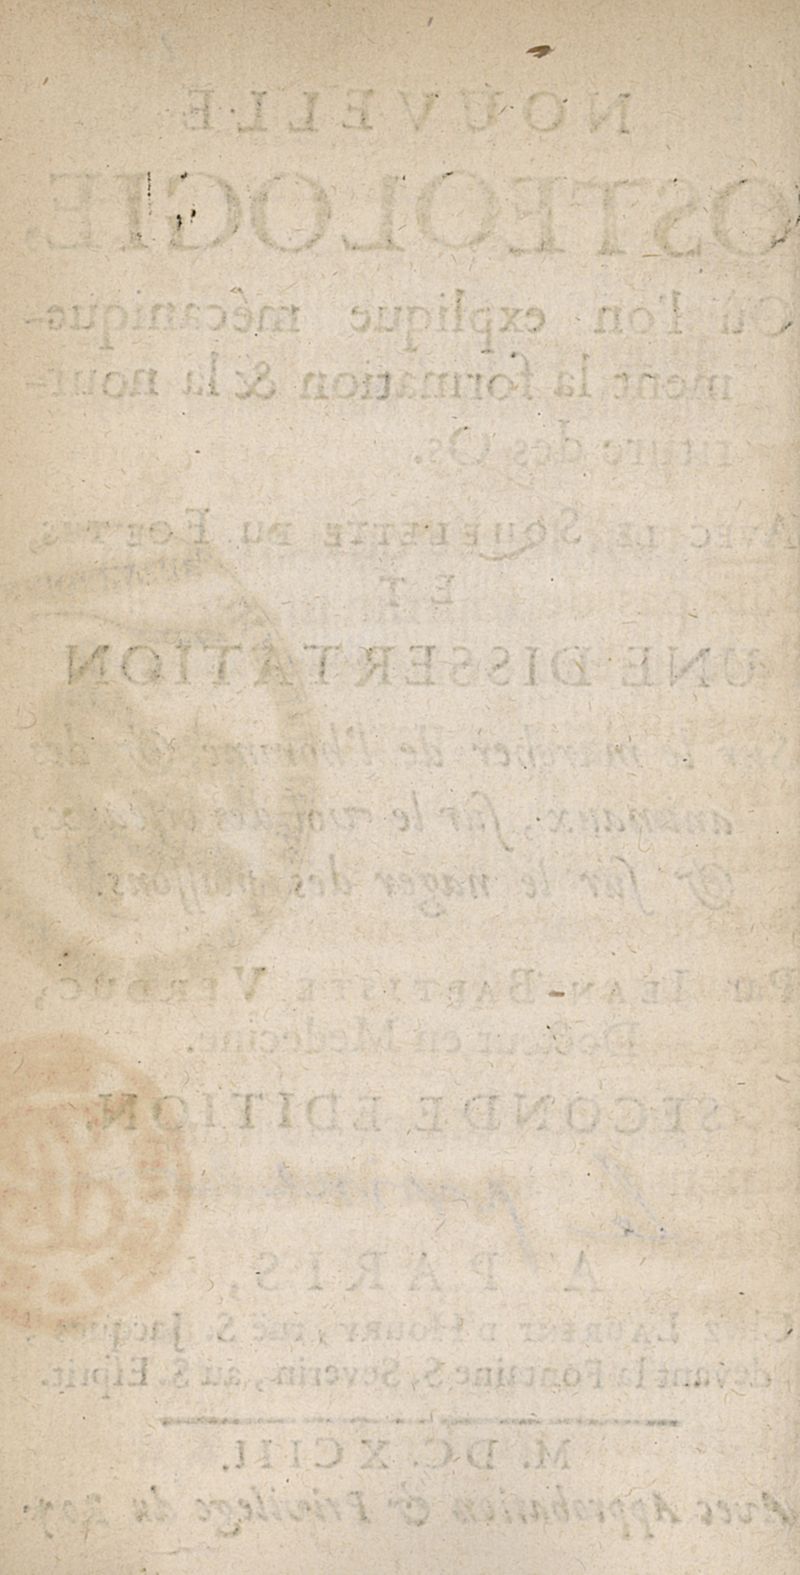 NOUVELLE
OSTEOLOGIE,
Où l'on explique mécanique-
ment la formation & la nour-
riture des Os.
AVEC LE SQUELETTE DU FOETUS,
ET
UNE DISSERTATION
Sur le marcher de l'homme & des
animaux, sur le vol des oiseaux,
& sur le nager des poissons.
Par JEAN-BAPTISTE VERDUC,
Docteur en Medecine.
SECONDE EDITION.
A PARIS,
Chez LAURENT D'HOURY, ruë S. Jacques,
devant la Fontaine S. Severin, au S. Esprit.
M. DC. XCIII.
Avec Approbation & Privilege du Roy.